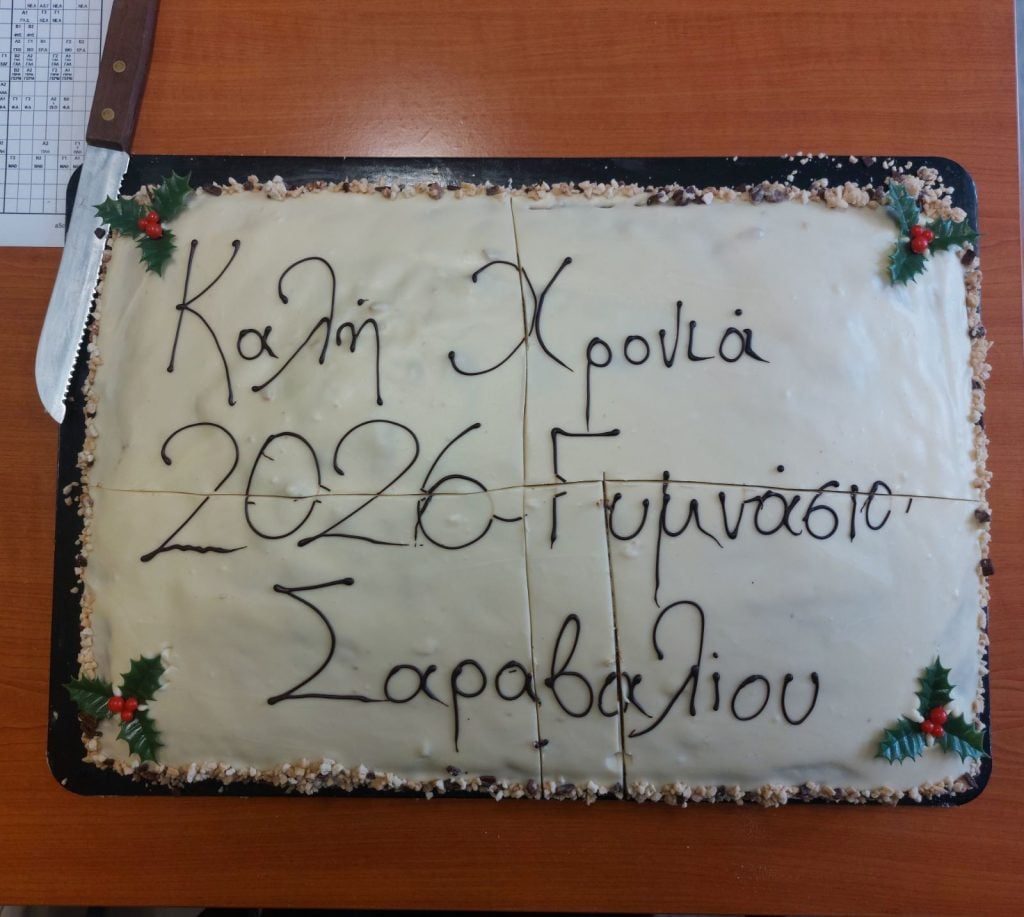 Καλή Χρονιά
2026-Γυμνάσιο
Σαραβαλίου